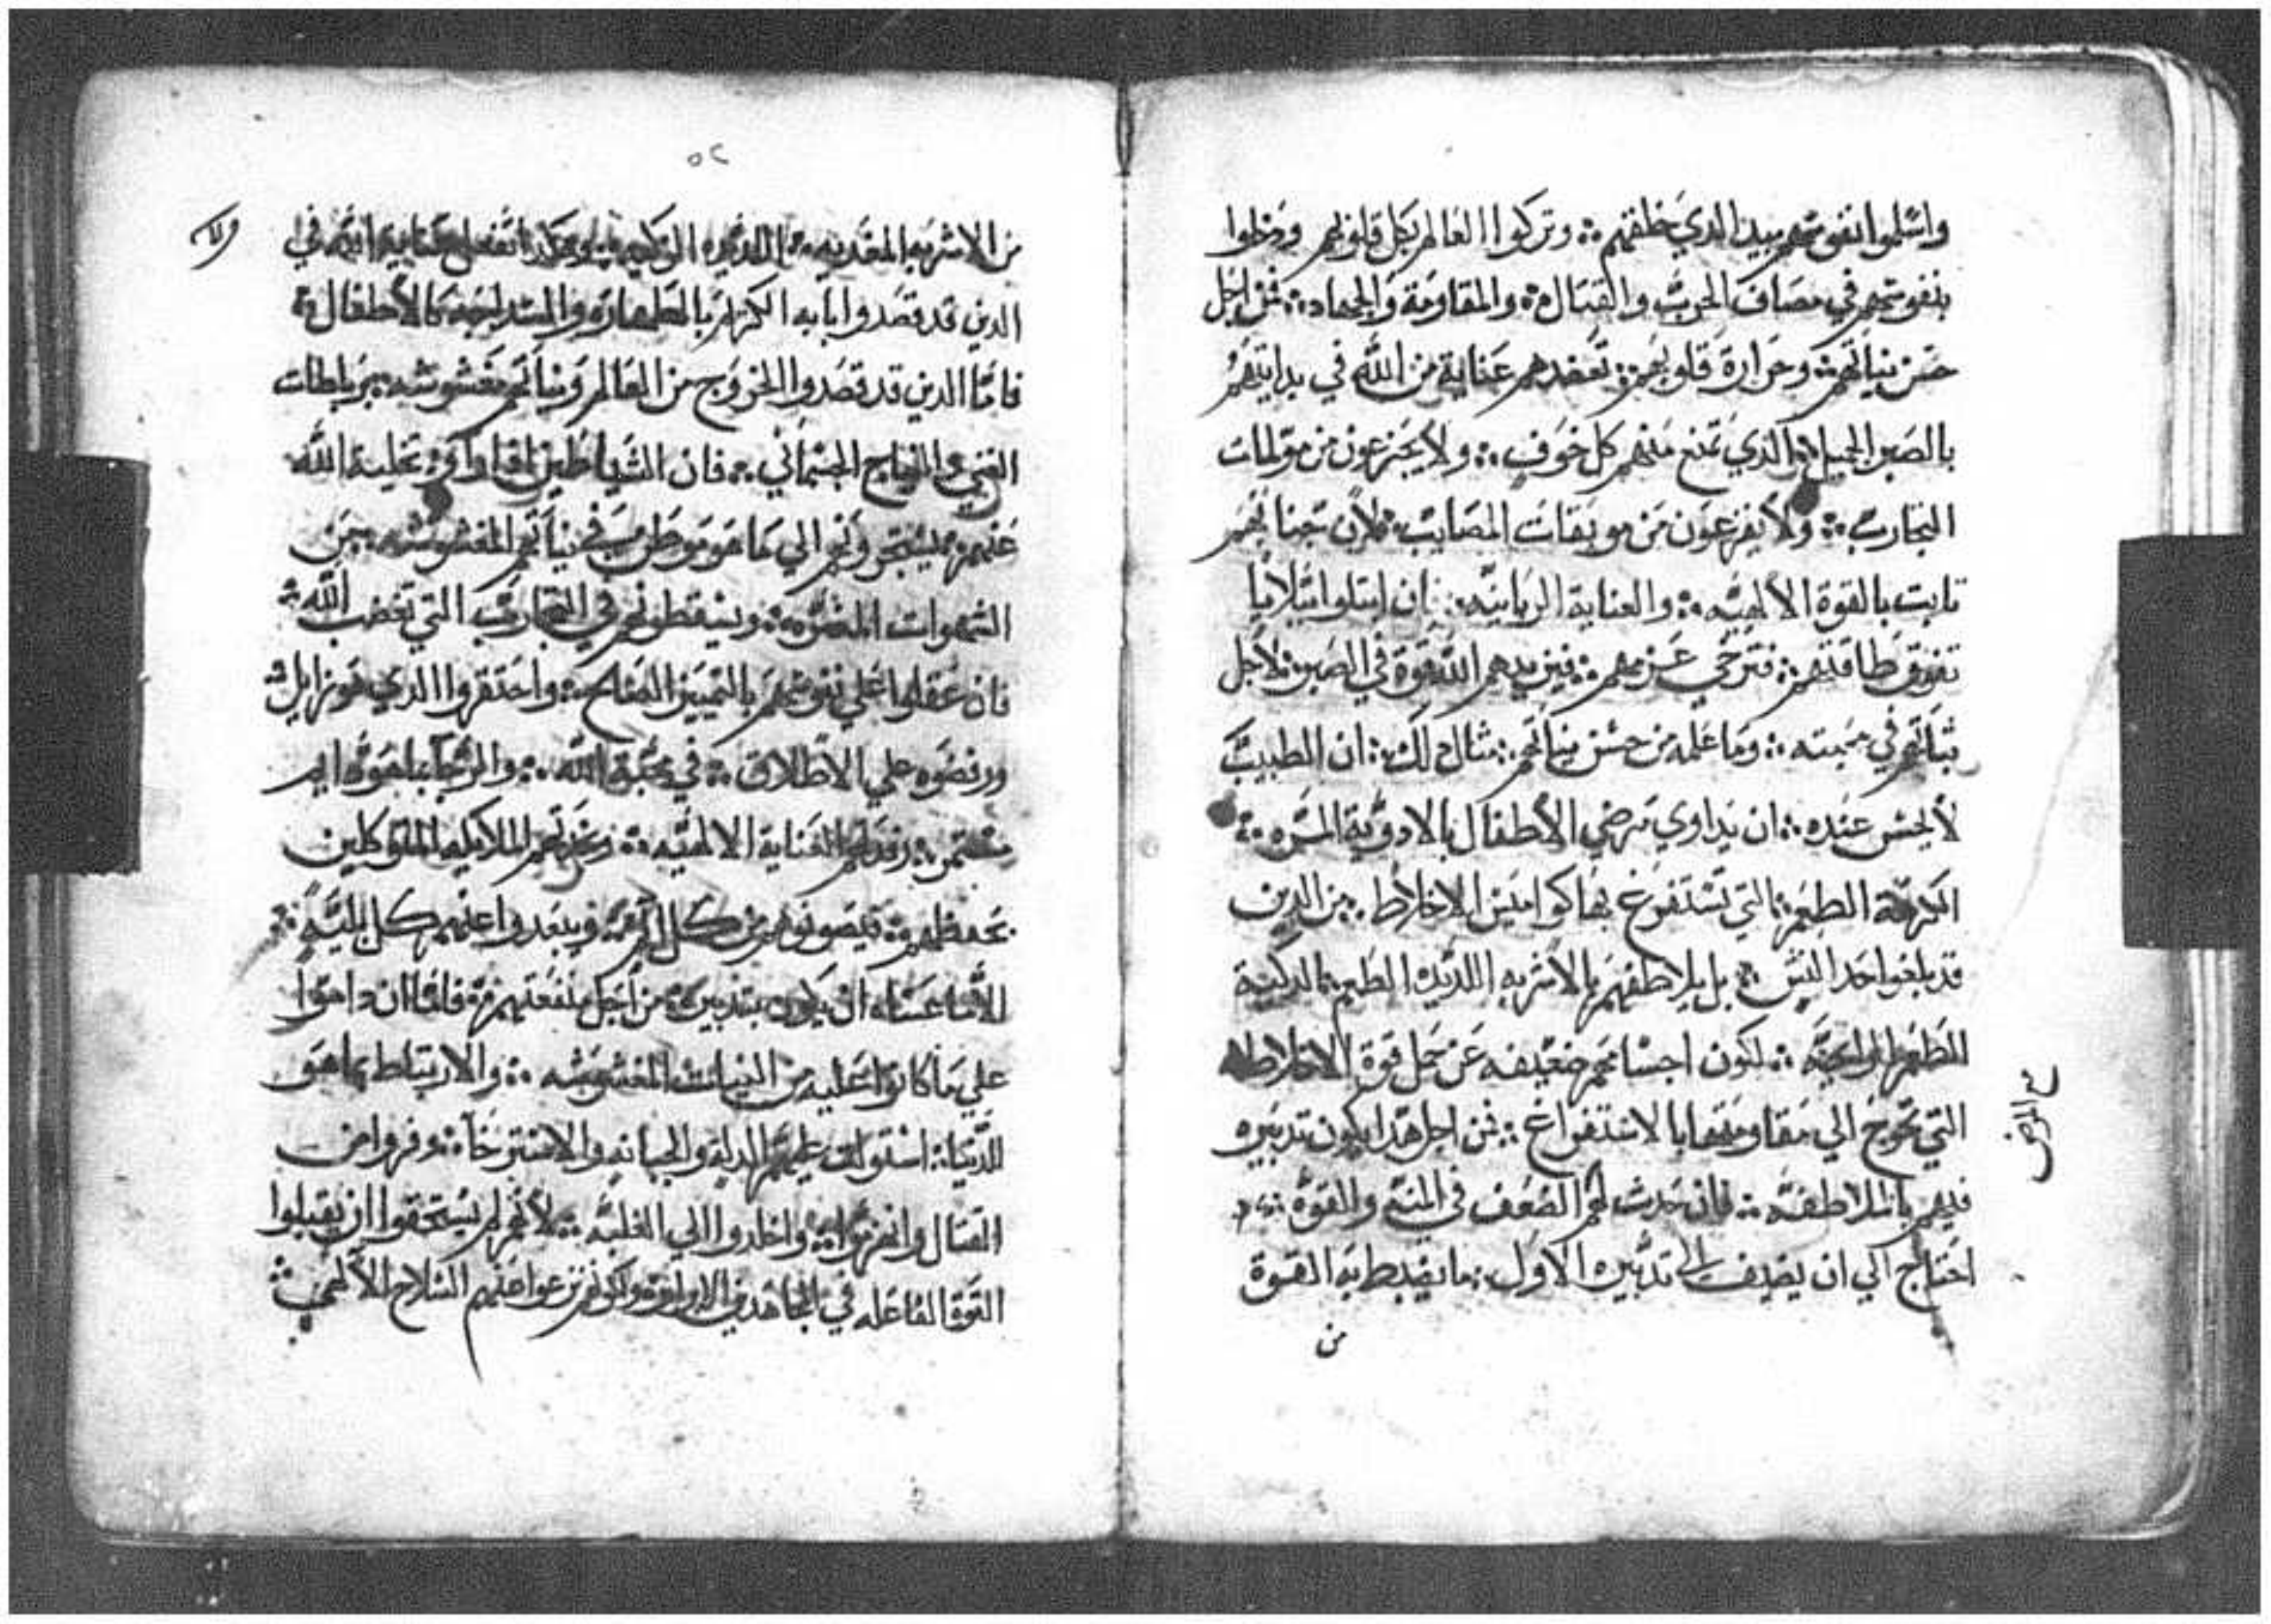 واسلموا نفوسهم بيد الذي خلقهم ؞ وتركوا العالم بكل قلوبهم ودخلوا
بنفوسهم في مصاف الحرب والقتال ؞ والمقاومة والجهاد ؞ فمن اجل
حسن نياتهم ؞ وحرارة قلوبهم ؞ تعضدهم عناية من الله في بدايتهم
بالصبر الجميل ؞ الذي تمنع منهم كل خوف ؞ ولا يجزعون من مولمات
التجارب ؞ ولا يفزعون من موبقات المصايب ؞ لان جنانهم
تابت بالقوة الالهيه ؞ والعناية الربانيه ؞ فان ابتلوا ببلايا
تفوق طاقتهم ؞ فترخي عزمهم ؞ فيزيدهم الله قوة في الصبر ؞ لاجل
ثباتهم في محبته ؞ وما علمه من حسن نياتهم ؞ مثال ذلك ؞ ان الطبيب
لا يحسن عنده ؞ ان يداوي مرضي الاطفال بالادوية المره ؞
الكريهة الطعم ؞ التي تستفرغ بها كوامين الاخلاط ؞ من الدين
قد بلغوا حد السن ؞ بل يلاطفهم بالاشربه اللديده الطعم ؞ الدكية
الطعم والرايحه ؞ لكون اجسامهم ضعيفه عن حمل قوة الاخلاط
التي تحوج الي مقاومتها بالاستفراغ ؞ فمن اجل هدا يكون تدبيره
فيهم بالملاطفه ؞ فان حدث لهم الضعف في المنه والقوه ؞
احتاج الي ان يضيف الي تدبيره الاول ؞ ما يضبط به القوة
من
ح المرض
٥٢
من الاشربه المغديه ؞ اللديده الزكيه ؞ وهكدا تفعل عناية الله في
الدين قد قصدوا ابابه الكريم بالطهاره والسداجه كالاطفال ؞
فاما الدين قد قصدوا الخروج من العالم ونياتهم مغشوشه ؞ برباطات
الغني والنياح الجسماني ؞ فان الشياطين ادا راوا تخلية الله
عنهم ؞ يستجرونهم الي ما هو موطن في نياتهم المغشوشه ؞ من
الشهوات المضره ؞ ويسقطونهم في التجارب التي تغضب الله ؞
فان عقلوا علي نفوسهم بالتمييز الصالح ؞ واحتقروا الدي هو زايل ؞
ورفضوه علي الاطلاق ؞ في محبة الله ؞ والرجا بما هو دايم
مستمر ؞ رفدتهم العناية الالهيه ؞ وعزتهم الملايكه المتوكلين
بحفظهم ؞ فيصونوهم من كل افه ؞ ويبعدوا عنهم كل بليه ؞
الا ما عساه ان يكون بتدبيره من اجل منفعتهم ؞ فاما ان داموا
علي ما كانوا عليه من النيات المغشوشه ؞ والارتباط بما هو
للدنيا ؞ استولت عليهم الدلة والجبانه والاسترخا ؞ وفروا من
القتال وانهزموا ؞ واخلدوا الي الغلبه ؞ لانهم لم يستحقوا ان يقبلوا
القوة الفاعله في المجاهدين الابرار ؞ ولكونهم نزعوا عنهم السلاح الالهي ؞